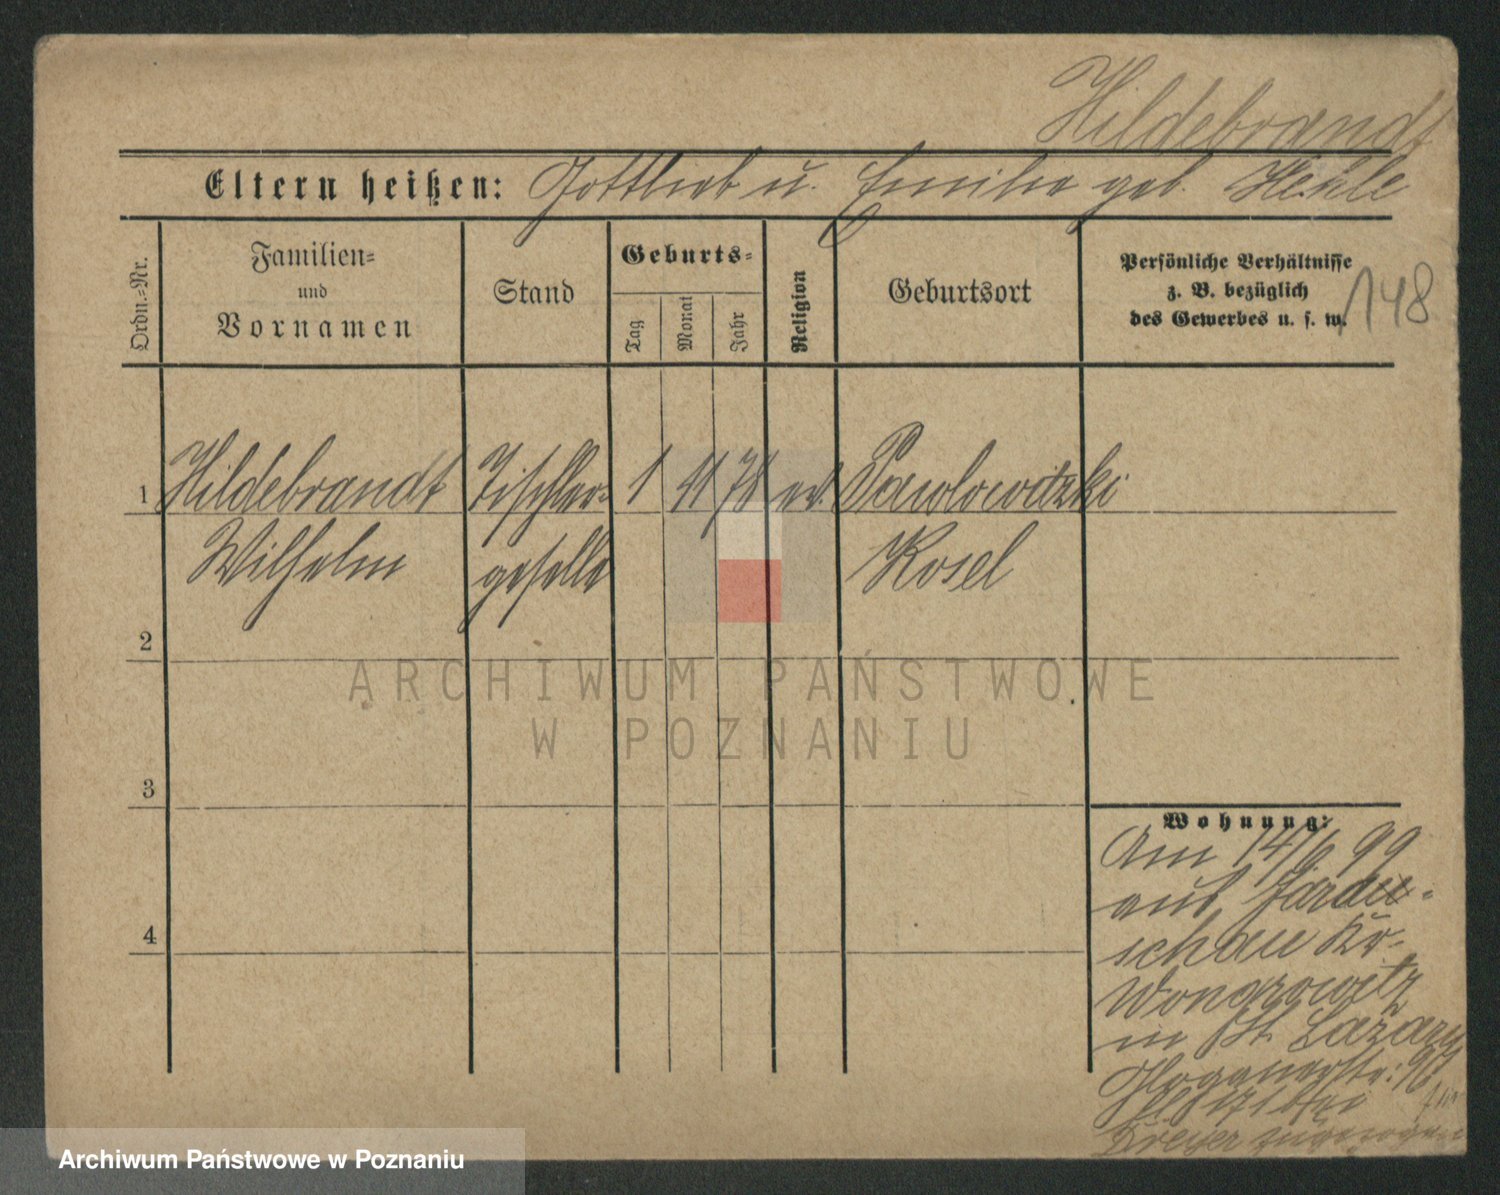 Hildebrandt
Eltern heißen: Gottlieb u. Emilie geb. Hehle
Ordn.-Nr.
Familien-
und
Vornamen
Stand
Geburts-
Tag
Monat
Jahr
Religion
Geburtsort
Persönliche Verhältnisse
z. B. bezüglich
des Gewerbes u. s. w.
148
1 Hildebrandt Tischler- 1 11 78 ev. Pawlowitzki
Wilhelm geselle Kosel
2
3
4
Wohnung:
Am 14/6 99
aus
schau Kr.
Wongrowitz
in St. Lazarus
Glogauerstr. 96
bei
Dreyer zugezogen
ARCHIWUM PAŃSTWOWE
W POZNANIU
Archiwum Państwowe w Poznaniu